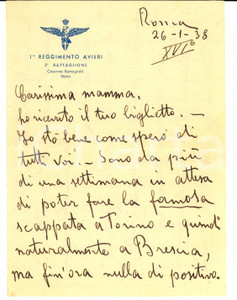 1° REGGIMENTO AVIERI
2° BATTAGLIONE
Caserma Romagnoli
Roma
Roma
26-1-38
XVI°
Carissima mamma,
ho ricevuto il tuo biglietto. —
Io sto bene come spero di
tutti voi — Sono da più
di una settimana in attesa
di poter fare la famosa
scappata a Torino e quindi
naturalmente a Brescia,
ma fin'ora nulla di positivo.